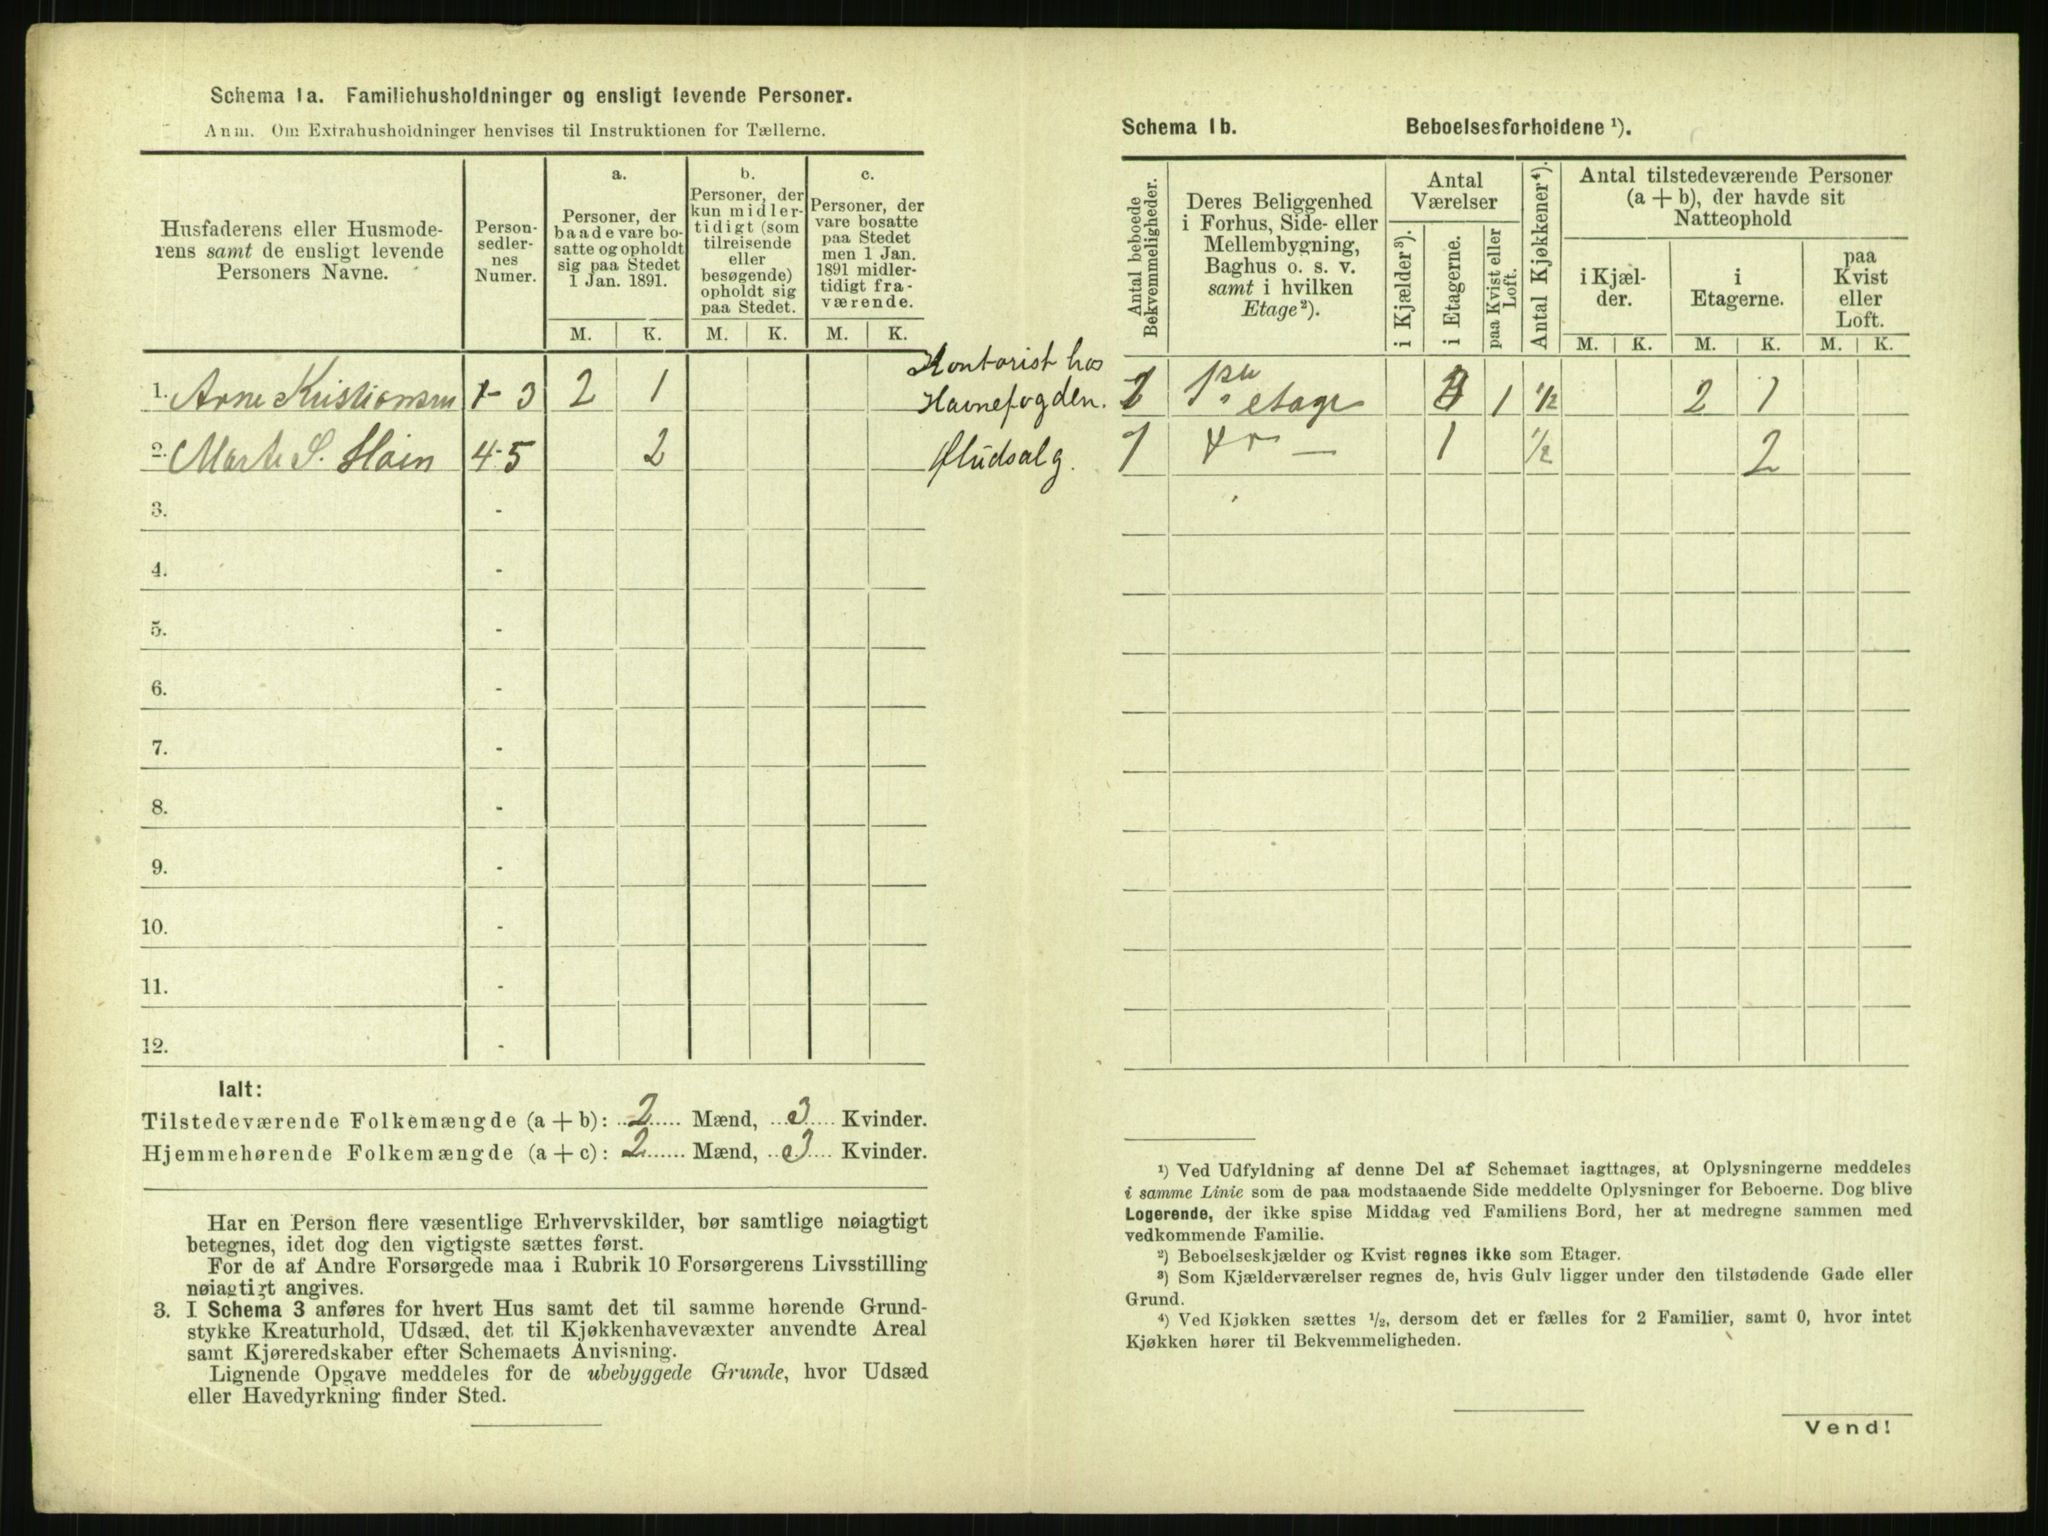 Schema 1a. Familiehusholdninger og ensligt levende Personer.
Anm. Om Extrahusholdninger henvises til Instruktionen for Tællerne.
Husfaderens eller Husmode-
rens samt de ensligt levende
Personers Navne.
Person-
sedler-
nes
Numer.
a.
Personer, der
baade vare bo-
satte og opholdt
sig paa Stedet
1 Jan. 1891.
b.
Personer, der
kun midler-
tidigt (som
tilreisende
eller
besøgende)
opholdt sig
paa Stedet.
c.
Personer, der
vare bosatte
paa Stedet
men 1 Jan.
1891 midler-
tidigt fra-
værende.
M. K. M. K. M. K.
1. Arne Kristiansen 1-3 2 1 Kontorist hos
Havnefogden.
2. Marte S. 4-5 2
3. -
4. -
5. -
6. -
7. -
8. -
9. -
10. -
11. -
12. -
Ialt:
Tilstedeværende Folkemængde (a + b): 2 Mænd, 3 Kvinder.
Hjemmehørende Folkemængde (a + c): 2 Mænd, 3 Kvinder.
Har en Person flere væsentlige Erhvervskilder, bør samtlige nøiagtigt
betegnes, idet dog den vigtigste sættes først.
For de af Andre Forsørgede maa i Rubrik 10 Forsørgerens Livsstilling
nøiagtigt angives.
3. I Schema 3 anføres for hvert Hus samt det til samme hørende Grund-
stykke Kreaturhold, Udsæd, det til Kjøkkenhavevæxter anvendte Areal
samt Kjøreredskaber efter Schemaets Anvisning.
Lignende Opgave meddeles for de ubebyggede Grunde, hvor Udsæd
eller Havedyrkning finder Sted.
Schema 1b. Beboelsesforholdene ¹).
Antal beboede
Bekvemmeligheder.
Deres Beliggenhed
i Forhus, Side- eller
Mellembygning,
Baghus o. s. v.
samt i hvilken
Etage ²).
Antal
Værelser
i Kjælder ³).
i Etagerne.
paa Kvist eller
Loft.
Antal Kjøkkener ⁴).
Antal tilstedeværende Personer
(a + b), der havde sit
Natteophold
i Kjæl-
der.
i
Etagerne.
paa
Kvist
eller
Loft.
M. K. M. K. M. K.
etage 1 ½ 2 1
1 1 ½ 2
¹) Ved Udfyldning af denne Del af Schemaet iagttages, at Oplysningerne meddeles
i samme Linie som de paa modstaaende Side meddelte Oplysninger for Beboerne. Dog blive
Logerende, der ikke spise Middag ved Familiens Bord, her at medregne sammen med
vedkommende Familie.
²) Beboelseskjælder og Kvist regnes ikke som Etager.
³) Som Kjælderværelser regnes de, hvis Gulv ligger under den tilstødende Gade eller
Grund.
⁴) Ved Kjøkken sættes ½, dersom det er fælles for 2 Familier, samt 0, hvor intet
Kjøkken hører til Bekvemmeligheden.
Vend!